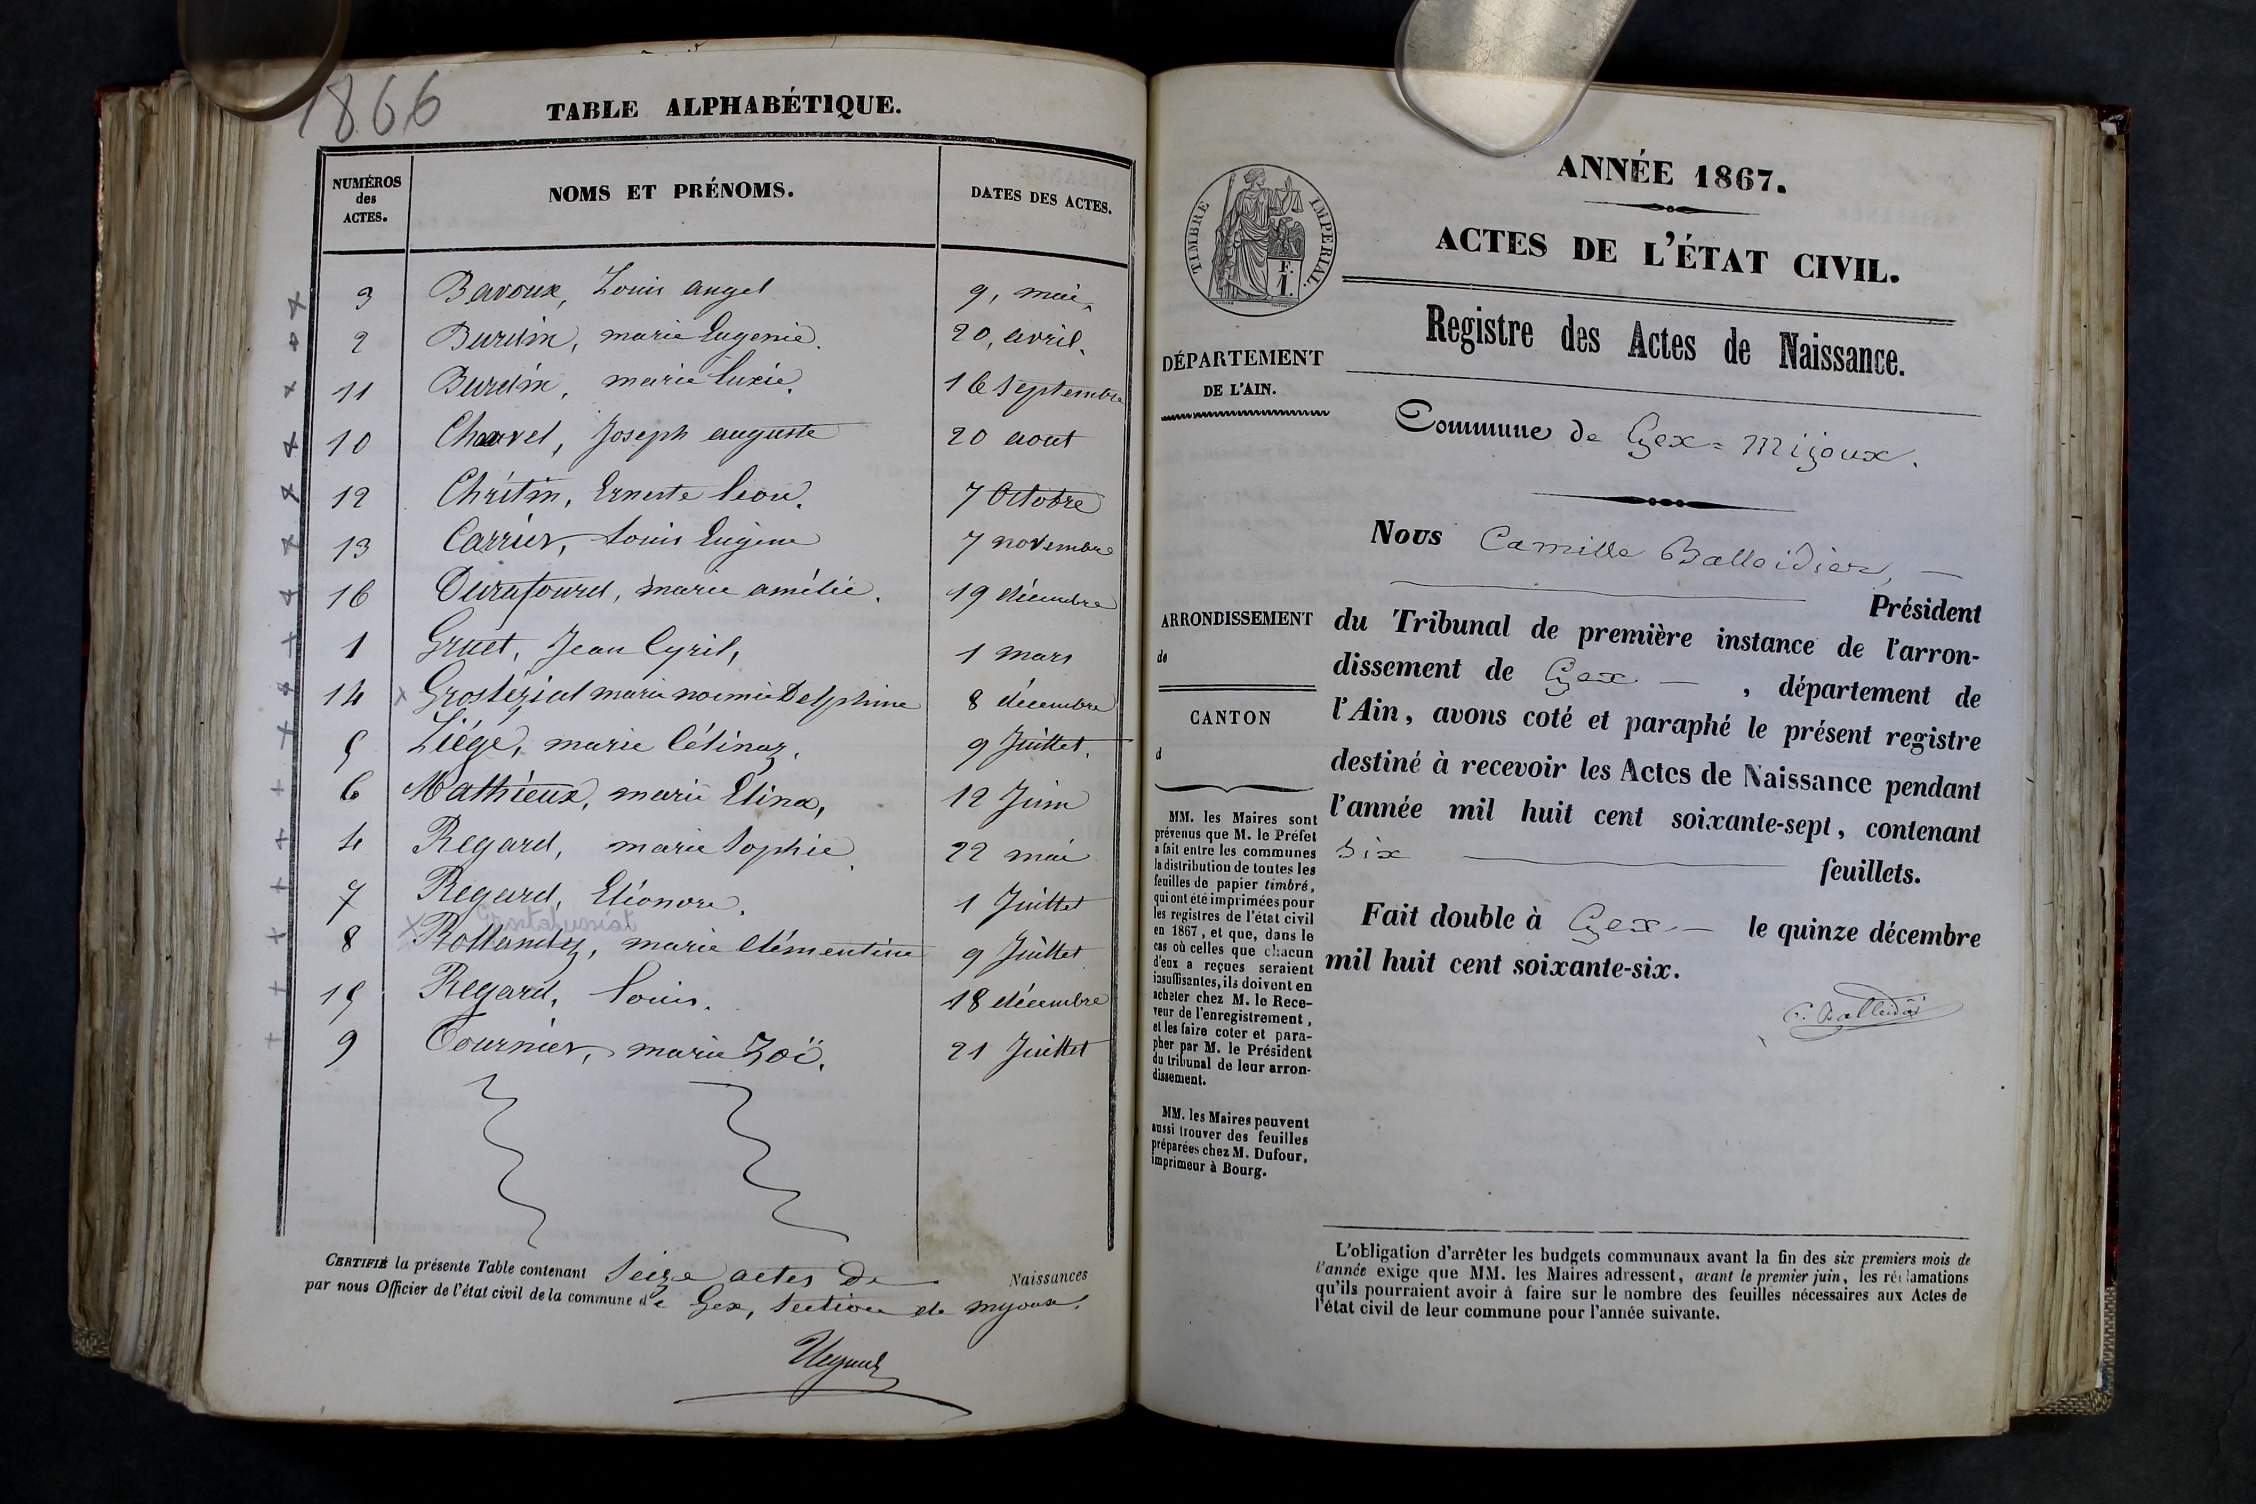 1866
TABLE ALPHABÉTIQUE.
NUMÉROS des ACTES.
NOMS ET PRÉNOMS.
DATES DES ACTES.
3 Bavoux, Louis angel 9, mai,
2 Burdin, marie Eugenie. 20, avril.
11 Burdin, marie lucie. 16 Septembre
10 Charvet, Joseph auguste 20 aout
12 Chritin, Erneste leon. 7 Octobre
13 Carrier, Louis Eugène 7 novembre
16 Durafourd, marie amélie. 19 décembre
1 Gruet, Jean Cyril, 1 mars
14 Grostézial marie noemie Delphine 8 décembre
5 Liége, marie Célinaz. 9 Juillet.
6 Mathieux, marie Elina, 12 Juin
4 Regard, marie Sophie. 22 mai
7 Regard, Eléonore. 1 Juillet
8 Rollandez, marie clémentine 9 Juillet
15 Regard, louis. 18 décembre
9 Tournier, marie Zoë. 21 Juillet
CERTIFIÉ la présente Table contenant Seize actes De Naissances
par nous Officier de l'état civil de la commune de Gex, Section de mijoux.
ANNÉE 1867.
ACTES DE L'ÉTAT CIVIL.
TIMBRE IMPERIAL.
F. 1.
Registre des Actes de Naissance.
DÉPARTEMENT
DE L'AIN.
Commune de Gex=Mijoux.
Nous Camille Balleidier, —
Président
ARRONDISSEMENT
de
CANTON
d
du Tribunal de première instance de l'arron-
dissement de Gex — , département de
l'Ain, avons coté et paraphé le présent registre
destiné à recevoir les Actes de Naissance pendant
l'année mil huit cent soixante-sept, contenant
six feuillets.
Fait double à Gex — le quinze décembre
mil huit cent soixante-six.
MM. les Maires sont
prévenus que M. le Préfet
a fait entre les communes
la distribution de toutes les
feuilles de papier timbré,
qui ont été imprimées pour
les registres de l'état civil
en 1867, et que, dans le
cas où celles que chacun
d'eux a reçues seraient
insuffisantes, ils doivent en
acheter chez M. le Rece-
veur de l'enregistrement,
et les faire coter et para-
pher par M. le Président
du tribunal de leur arron-
dissement.
MM. les Maires peuvent
aussi trouver des feuilles
préparées chez M. Dufour,
imprimeur à Bourg.
L'obligation d'arrêter les budgets communaux avant la fin des six premiers mois de
l'année exige que MM. les Maires adressent, avant le premier juin, les réclamations
qu'ils pourraient avoir à faire sur le nombre des feuilles nécessaires aux Actes de
l'état civil de leur commune pour l'année suivante.